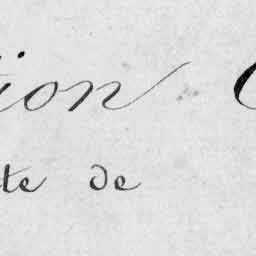 tion C
te de